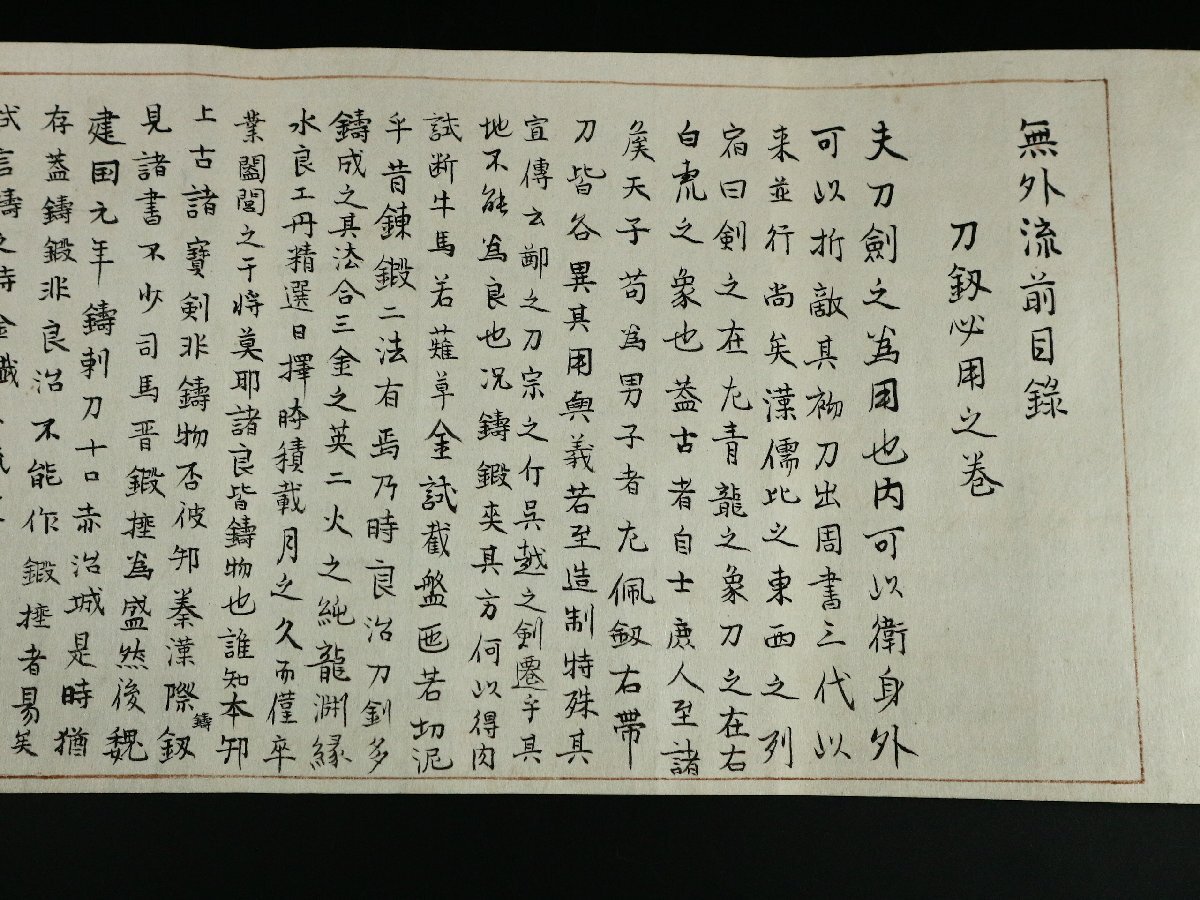 無外流前目錄
刀釼必用之卷
夫刀劍之為用也内可以衛身外
可以折敵其礽刀出周書三代以
来並行尚矣漢儒比之東西之列
宿曰剣之在左青龍之象刀之在右
白虎之象也葢古者自士庶人至諸
矦天子苟為男子者左佩釼右帶
刀皆各異其用與義若至造制特殊其
宜傳云鄭之刀宗之斤呉越之劍遷乎其
地不能為良也况鑄鍛夾其方何以得肉
試断牛馬若薙草金試截盤匜若切泥
乎昔錬鍛二法有焉乃時良治刀釗多
鑄成之其法合三金之英二火之純龍渊緣
水良工丹精選日擇時積載月之久而僅卒
業闔閭之干將莫耶諸良皆鑄物也誰知本邦
上古諸寶剣非鑄物否彼邦秦漢際鑄釼
見諸書不少司馬晋鍛捶為盛然後魏
建国元年鑄刺刀十口赤治城是時猶
存葢鑄鍛非良治不能作鍛捶者易矣
试言鑄之時金